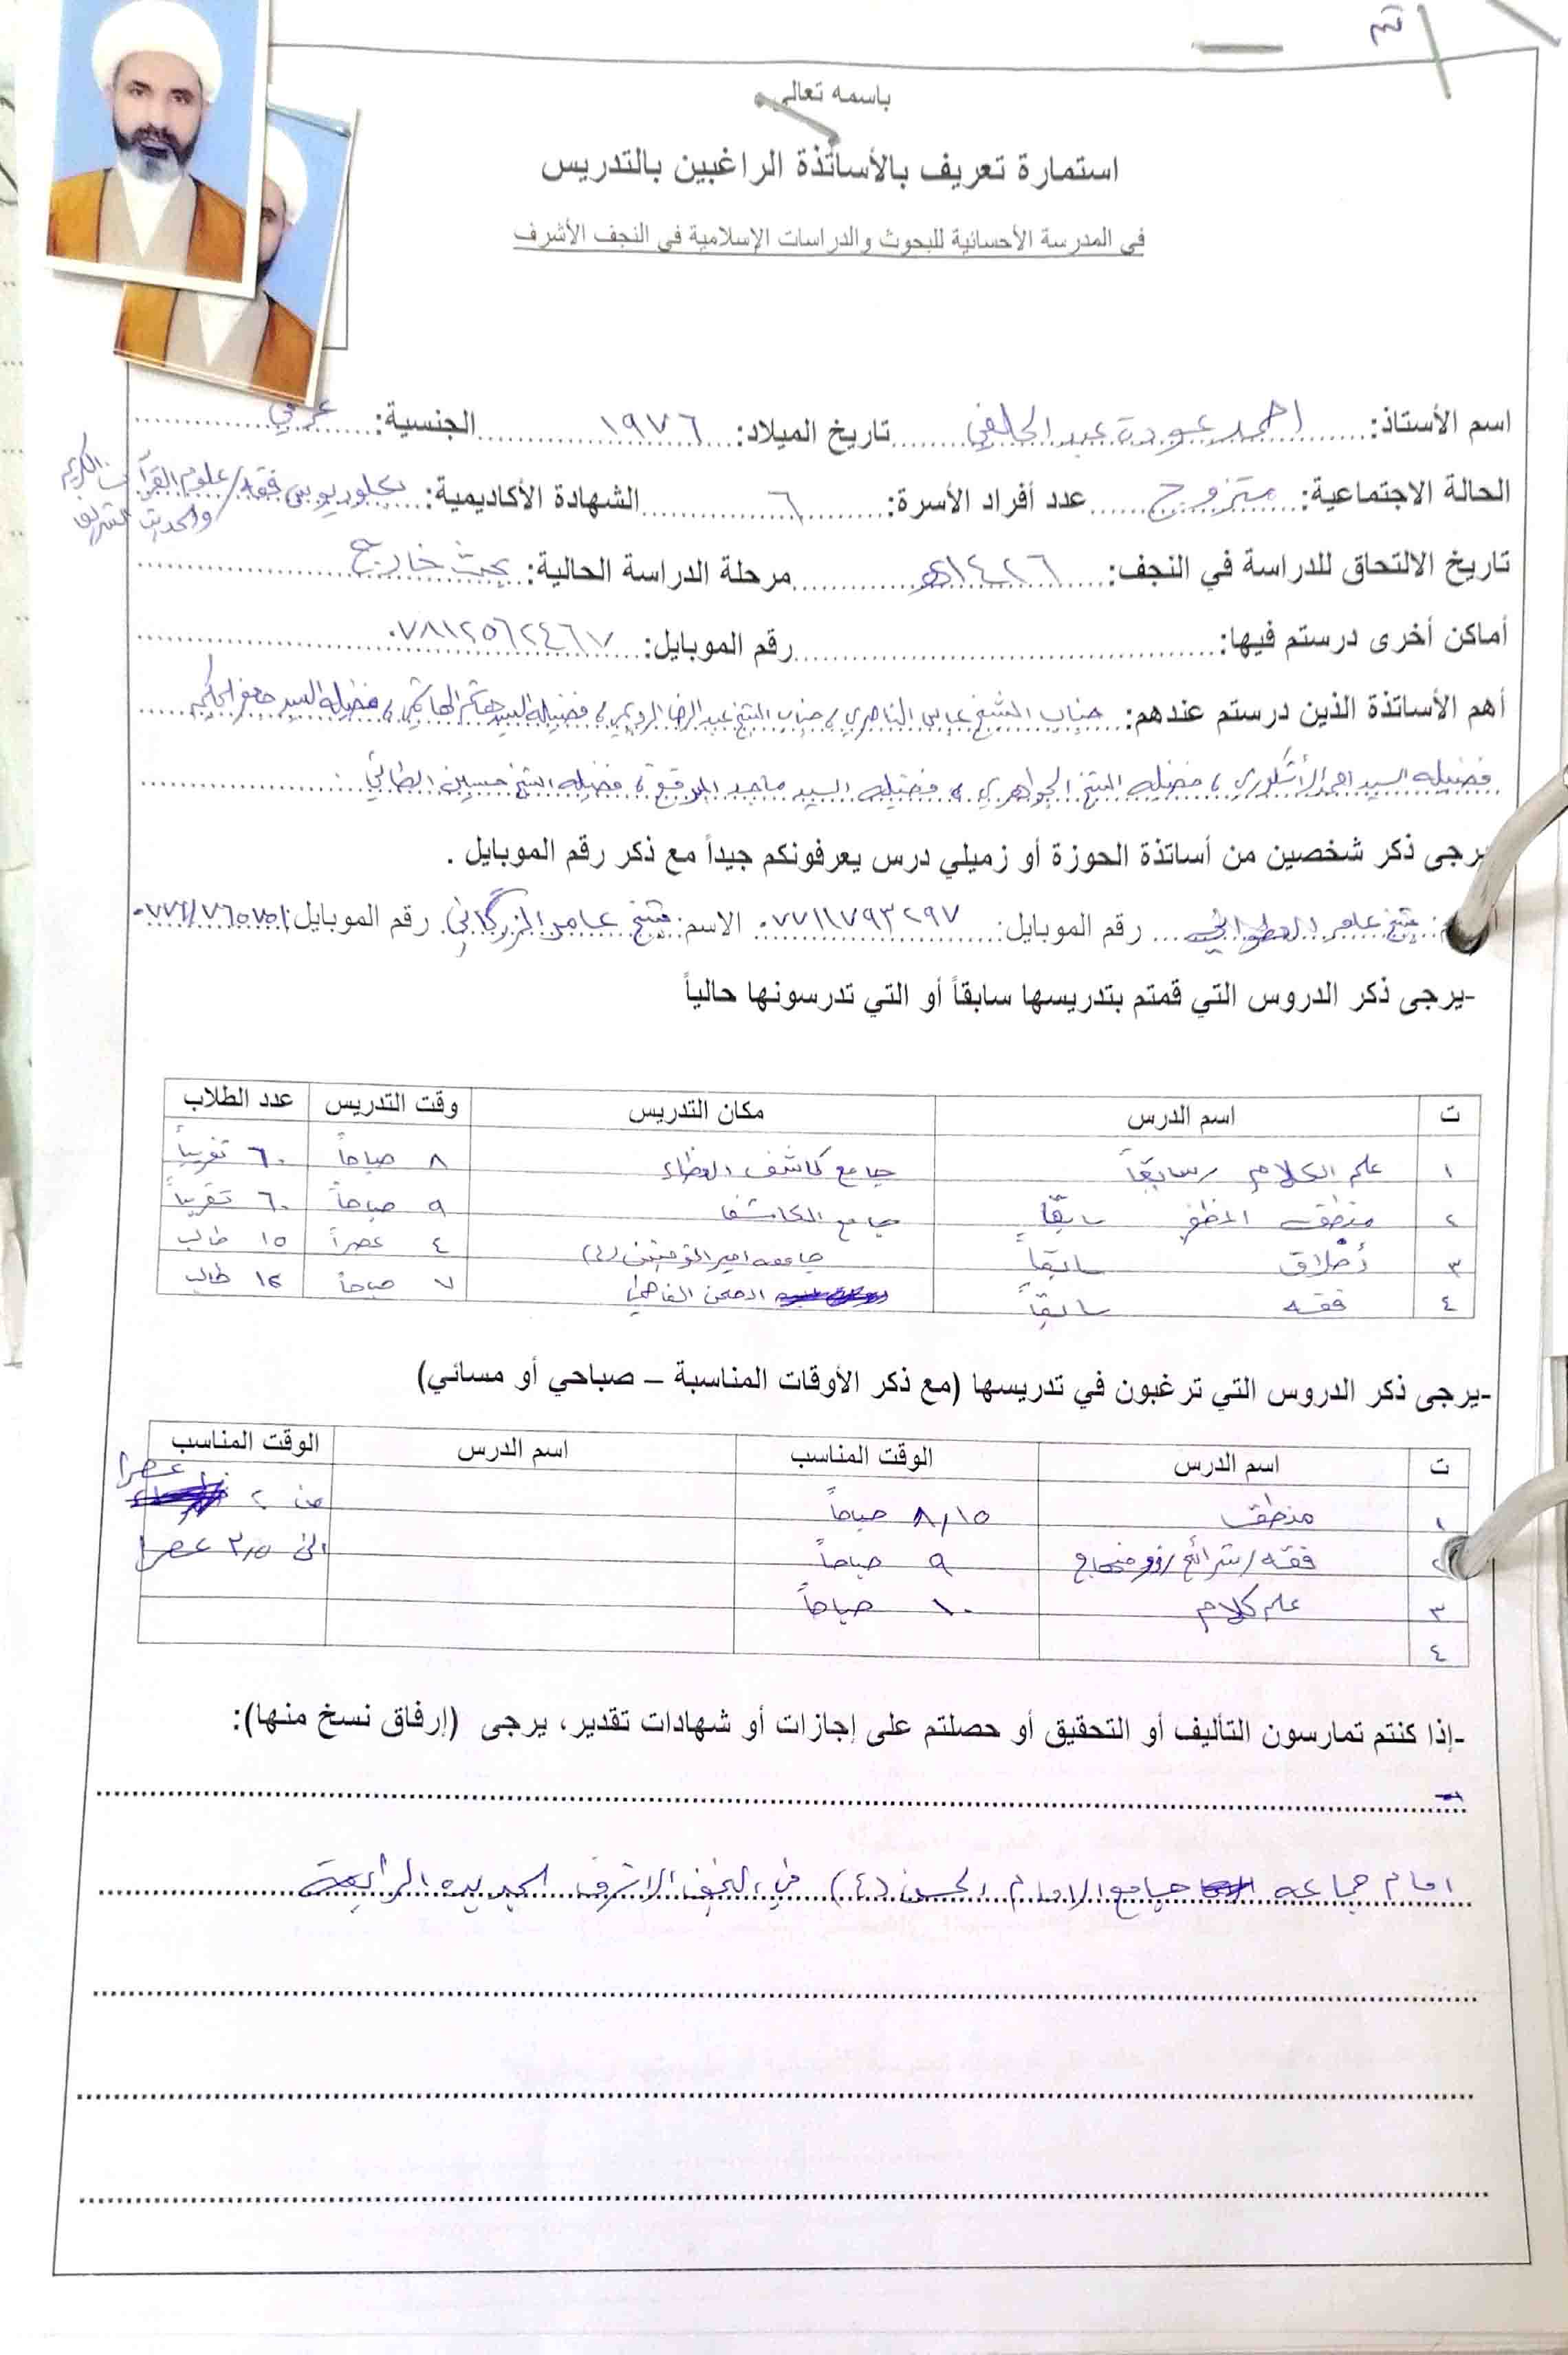 باسمه تعالى
استمارة تعريف بالأساتذة الراغبين بالتدريس
في المدرسة الأحسائية للبحوث والدراسات الإسلامية في النجف الأشرف
اسم الأستاذ: احمد عودة عبد الحلفي تاريخ الميلاد: ١٩٧٦ الجنسية: عراقي
الحالة الاجتماعية: متزوج عدد أفراد الأسرة: ٦ الشهادة الأكاديمية: بكلوريوس فقه/علوم القرآن الكريم
والحديث الشريف
تاريخ الالتحاق للدراسة في النجف: ١٤٢٦هـ مرحلة الدراسة الحالية: بحث خارج
أماكن أخرى درستم فيها: رقم الموبايل: ٠٧٨١٢٥٦٢٤٦٧
أهم الأساتذة الذين درستم عندهم: جناب الشيخ عباس الناصري، جناب الشيخ عبد الرضا، فضيلة السيد الهاشمي، فضيلة السيد جعفر الحكيم
فضيلة السيد احمد الأشكوري، فضيلة الشيخ الجواهري، فضيلة السيد ماجد، فضيلة الشيخ حسين الطائي
يرجى ذكر شخصين من أساتذة الحوزة أو زميلي درس يعرفونكم جيداً مع ذكر رقم الموبايل .
شيخ عامر رقم الموبايل: ٠٧٧١١٧٩٣٢٩٧ الاسم: شيخ عامر الزرگاني رقم الموبايل:
-يرجى ذكر الدروس التي قمتم بتدريسها سابقاً أو التي تدرسونها حالياً
ت اسم الدرس مكان التدريس وقت التدريس عدد الطلاب
١ علم الكلام / سابقاً جامع كاشف الغطاء ٨ صباحاً ٦٠ تقريباً
٢ منطق المظفر سابقاً جامع الكاشف ٩ صباحاً ٦٠ تقريباً
٣ أخلاق سابقاً جامعه امير المؤمنين (ع) ٤ عصراً ١٥ طالب
٤ فقه سابقاً الصحن الفاطمي ٧ صباحاً ١٢ طالب
-يرجى ذكر الدروس التي ترغبون في تدريسها (مع ذكر الأوقات المناسبة – صباحي أو مسائي)
ت اسم الدرس الوقت المناسب اسم الدرس الوقت المناسب
١ منطق ٨,١٥ صباحاً من ٢ عصرا
٢ فقه/شرائع/ منهاج ٩ صباحاً الى ٣,٥ عصرا
٣ علم كلام ١٠ صباحاً
٤
-إذا كنتم تمارسون التأليف أو التحقيق أو حصلتم على إجازات أو شهادات تقدير، يرجى (إرفاق نسخ منها):
امام جماعه جامع الامام الحسن (ع) في النجف الاشرف الجديده الرابعة